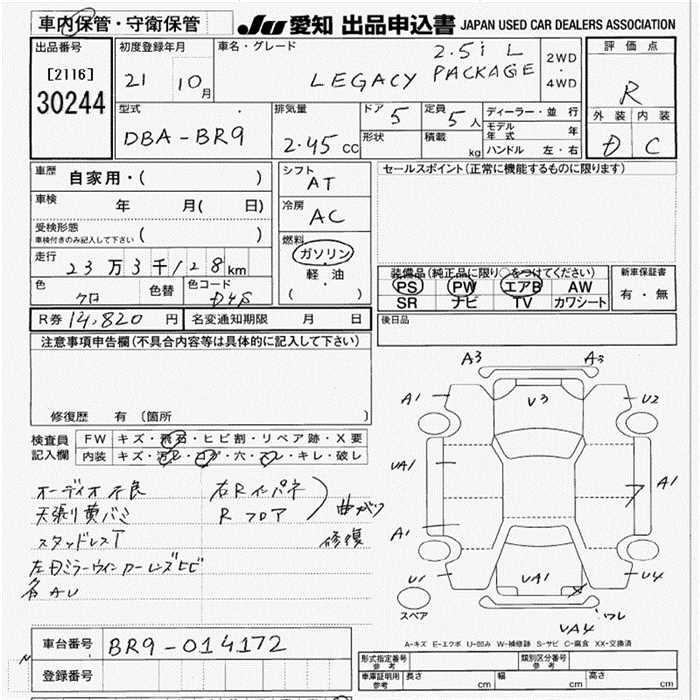 車内保管・守衛保管
JU 愛知 出品申込書 JAPAN USED CAR DEALERS ASSOCIATION
出品番号
[2116]
30244
初度登録年月
21 10月
車名・グレード
LEGACY 2.5i L PACKAGE
2WD
・
4WD
評価点
R
外装 内装
D C
型式
DBA-BR9
排気量
2.45cc
ドア 5
形状
定員 5人
積載 kg
ディーラー・並行
モデル年式 年
ハンドル 左・右
車歴
自家用・( )
車検 年 月( 日)
受検形態
車検付きのみ記入して下さい ( )
走行
23万3千128km
色
クロ
色替
色コード
D4S
R券 14,820 円
名変通知期限 月 日
シフト
AT
冷房
AC
燃料
ガソリン
軽・油
( )
セールスポイント(正常に機能するものに限ります)
装備品(純正品に限り○をつけてください)
PS PW エアB AW
SR ナビ TV カワシート
新車保証書
有・無
後日品
注意事項申告欄(不具合内容等は具体的に記入して下さい)
修復歴 有(箇所 )
検査員記入欄
FW キズ・飛石・ヒビ割・リペア跡・X要
内装 キズ・汚レ・コゲ・穴・スレ・キレ・破し
オーディオ不良
天張り黄バミ
スタッドレスT
左ドミラーウインカーレンズヒビ
各AU
右Rインパネ
Rフロア
曲がり
修復
A3 A3
A1 V3 U2
UA1 A1
A1
U1 UA1 U4
ワレ
VA4
スペア
A-キズ E-エクボ U-凹み W-補修跡 S-サビ C-腐食 XX-交換済
車台番号 BR9-014172
登録番号
形式指定番号
参考
類別区分番号
参考
車庫証明用
参考
長さ cm 幅 cm 高さ cm